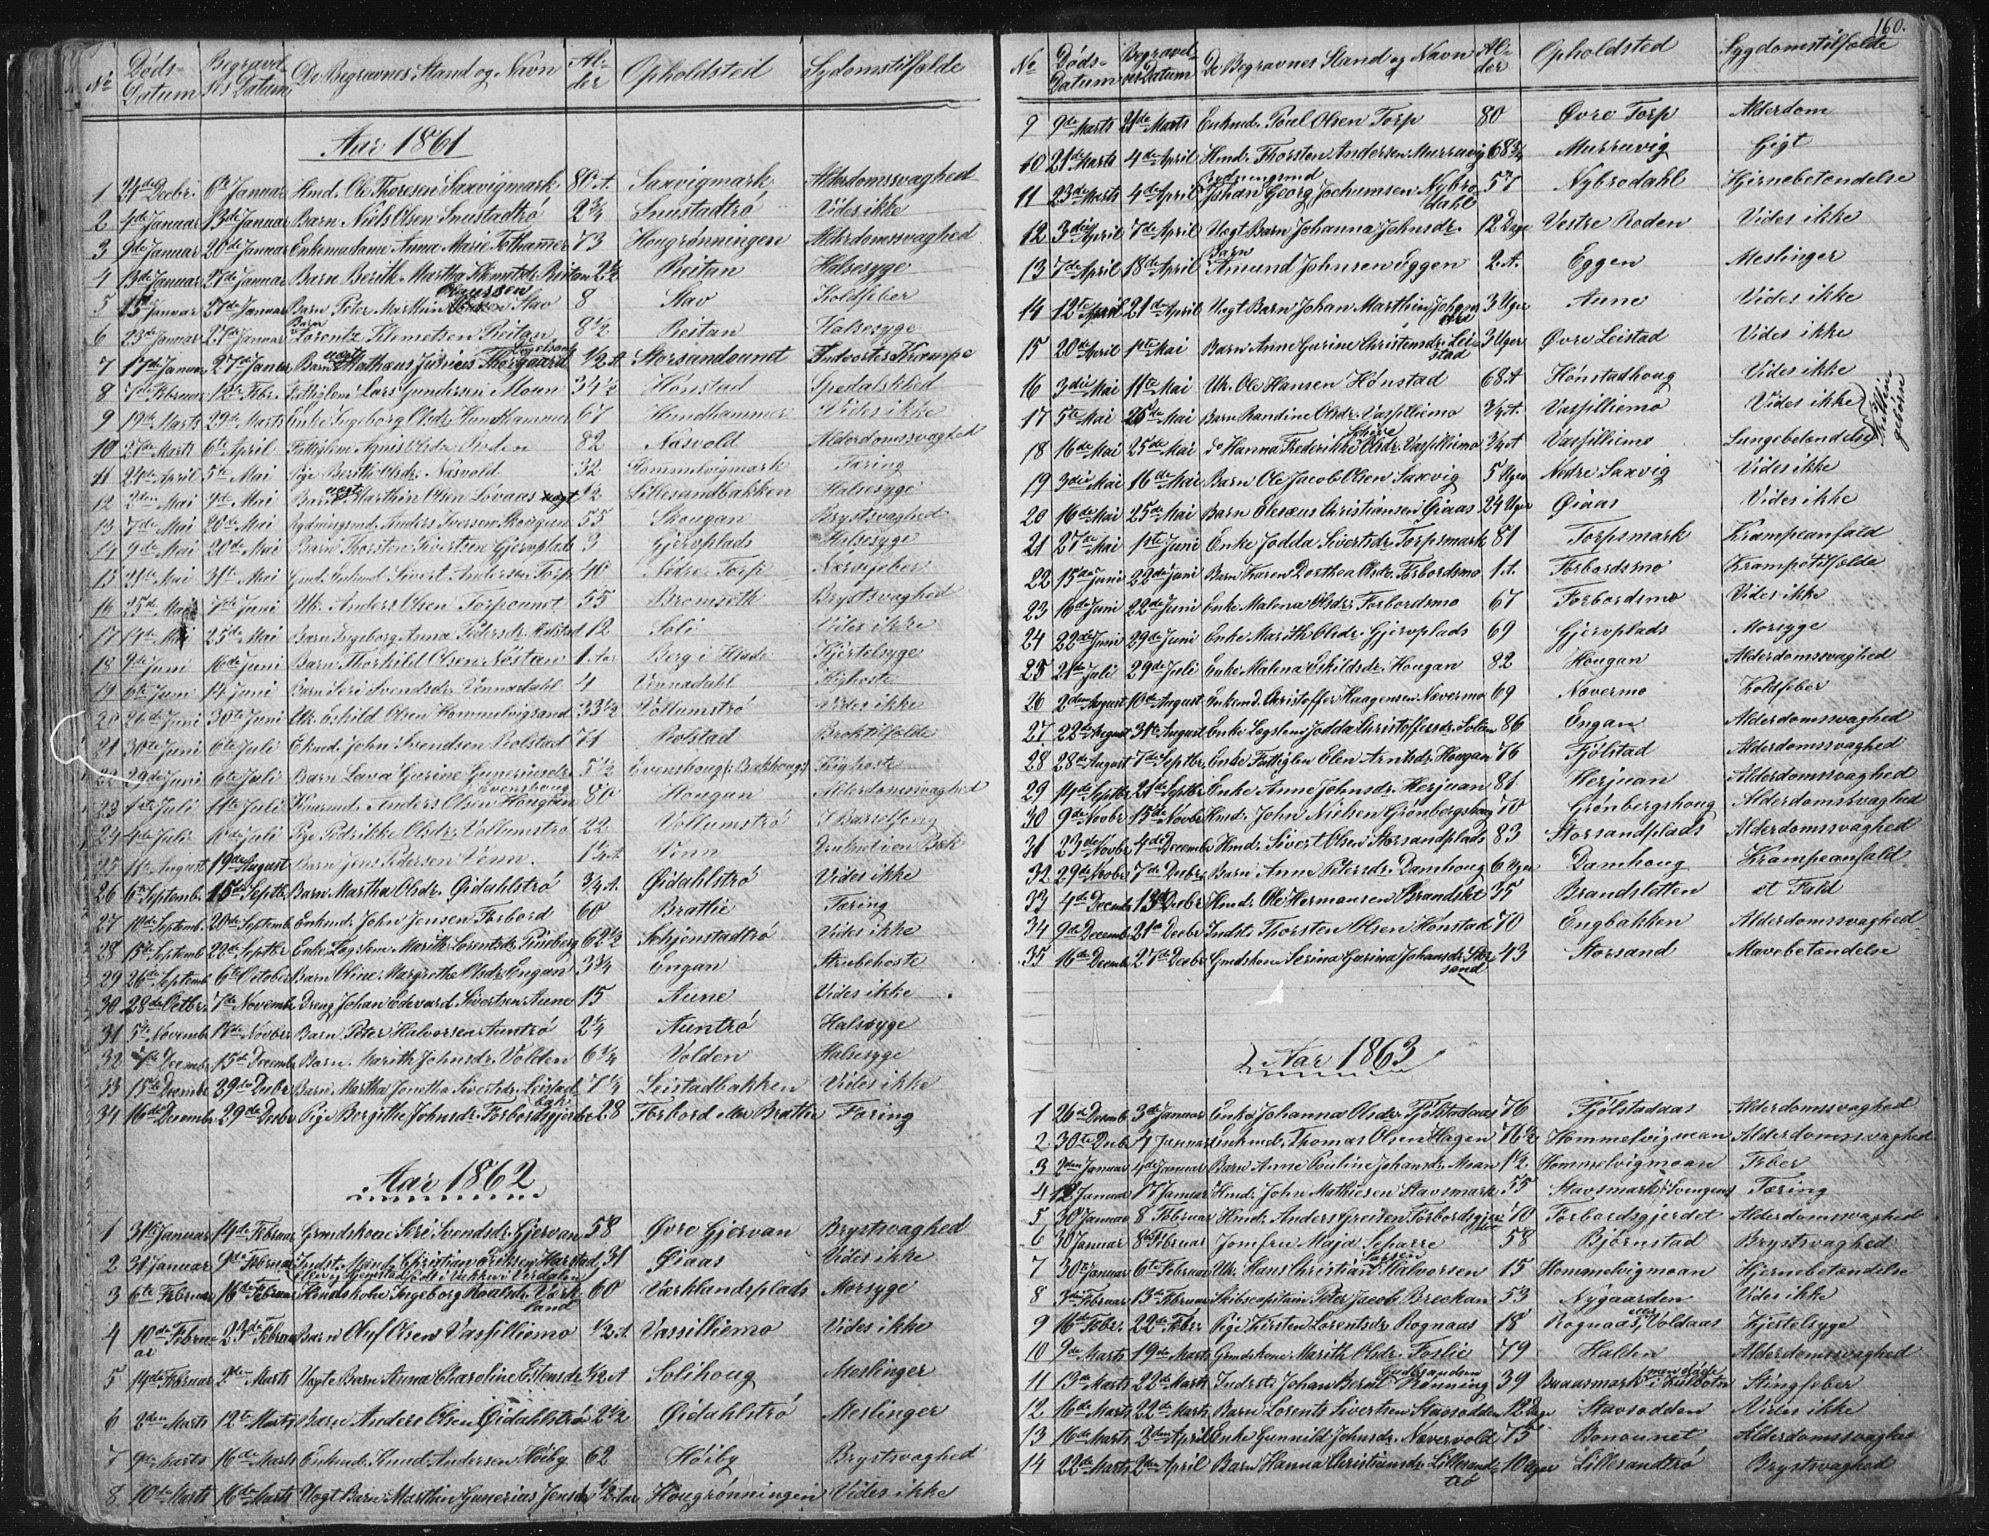 160.
No Døds-Datum Begravel-ses Datum De Begravnes Stand og Navn Al-der Opholdsted Sydomstilfælde
Aar 1861
1 24de Decbr. 6te Januar Kmd. Ole Thoresen Saxvigmark 80 A. Saxvigmark Alderdomssvaghed
2 4de Januar 13de Januar Barn Niels Olsen Snustadtrø 2 3/4 Snustadtrø Vides ikke
3 9de Januar 20de Januar Enkemadame Anna Marie Folhamer 73 Hougrønningen Alderdomssvaghed
4 13de Januar 27de Januar Barn Berith Martha Klemetsdr. Reitan 2 1/2 Reitan Halsesyge
5 15 Januar 27de Januar Barn Peter Marthin Claussen Stav 8 Stav Koldfeber
6 23de Januar 27de Januar Barn Lorentz Klemetsen Reitan 8 1/2 Reitan Halsesyge
7 17de Januar 27de Januar Barn uægt Mathæus Junius 1/2 A. Storsandaunet Indvortes Krampe
8 7de Februar 12te Febr. Fattiglem Lars Gundersen Moan 34 1/2 Hønstad Spedalskhed
9 19de Marts 29de Marts Enke Ingeborg Olsdr. Hundhammer 67 Hundhammer Vides ikke
10 27de Marts 6te April Fattiglem Agnis Olsdr. Roden 82 Næsvold Alderdomssvaghed
11 24de April 5te Mai Pige Berith Olsdr. Næsvold 32 Hommelvigmark Tæring
12 2den Mai 9de Mai Barn uægt Marthin Olsen Løvaas 1/2 Lillesandbakken Halsesyge
13 7de Mai 20de Mai Rydningsmd. Anders Iversen Skougan 55 Skougan Brystsvaghed
14 9de Mai 20de Mai Barn Thorsten Sivertsen Gjervplads 3 Gjervplads Halsesyge
15 21de Mai 31te Mai Gmd. Enkmd. Sivert Andersen Torp 40 Nedre Torp Nervefeber
16 25de Mai 7de Juni Uk. Anders Olsen Torpaunet 55 Bromseth Brystsvaghed
17 14de 25de Mai Barn Ingeborg Anna Pedersdr. Rolstad 12 Soli Vides ikke
18 9de Juni 16de Juni Barn Thorkild Olsen Nestan 1 Aar Berg i Hlade Kjertelsyge
19 6te Juni 14 Juni Barn Seri Svendsdr. Vennadahl 4 Vennadahl Kighoste
20 26de Juni 30te Juni Uk. Eskild Olsen Hommelvigsand 33 1/2 Vollumstrø Vides ikke
21 30te Juni 6te Juli Ekmd. John Svendsen Rolstad 71 Rolstad Broktilfælde
22 29de Juni 6te Juli Barn Lava Gurine Guneriusdr. Evenshoug 5 1/2 Evenshoug (: Bakhoug:) Kighoste
23 1ste Juli 11te Juli Kaarmd. Anders Olsen Hougan 80 Hougan Alderdomssvaghed
24 4de Juli 11te Juli Pige Fedrikke Olsdr. Vollumstrø 22 I Barselseng
25 11te August 19de August Barn Jens Pedersen Venn. 1 1/4 A. Venn Druknet i en Bæk
26 6te Septemb. 15de Septbr. Barn Martha Olsdr. Øidahlstrø 3/4 A. Øidahlstrø Vides ikke
27 10de Septemb. 20de Septemb. Enkmd. John Jensen Forbord 60 Brattie Tæring
28 15de Septemb 22de Septbr. Enke Lægslem Marith Lorentsdr. Pineberg 62 1/2 Schjenstadtrø Vides ikke
29 26de Septemb 6te October Barn Oline Margrethe Olsdr. Engan 3 3/4 Engan Strubehoste
30 28de Octbr. 7de Novemb. Dreng Johan Edevard Sivertsen Aune 15 Aune Vides ikke
31 5te Novemb. 17de Novber Barn Peter Halvorsen Auntrø 2 1/4 Auntrø Halsesyge
32 7de Decemb. 15de Decemb. Barn Marith Johnsdr. Volden 6 3/4 Volden Halsesyge
33 15de Decembr 29de Decbr Barn Martha Jonetha Sivertsdr. Leistad 7 1/4 Leistadbakken Vides ikke
34 16de Decembr 29de Decbr Pige Bergithe Johnsdr. Forbordsgjerde 28 Forbord Mar Brattie Tæring
Aar 1862
1 31te Januar 14de Februar Grmdskone Seri Svendsdr. Gjervan 58 Øvre Gjervan Brystsvaghed
2 31 Januar 9de Februar Indst. Mand Christian Eriksen Harstad 31 Øiaas Vides ikke
3 6te Februar 16de Februar Hmdskone Ingeborg Roaldsdr. Værkland 60 Værklandsplads Morsyge
4 10de Februar 23de Februar Barn Oluf Olsen Vasfilliemo 1/2 A. Vassilliemo Vides ikke
5 14de Februar 2den Marts Uægte Barn Anna Charoline Estensdr. 1/2 A Solihoug Meslinger
6 2den Marts 12te Marts Barn Anders Olsen Øidahlstrø 2 1/2 Øidahlstrø Meslinger
7 9de Marts 16de Marts Enkmd. Knud Andersen Høiby 62 Høiby Brystsvaghed
8 10de Marts 16de Marts Uægt Barn Marthin Gunerius Jensen 1/2 Aar Hougrønningen Vides ikke
No Døds-Datum Begravel-ses Datum De Begravnes Stand og Navn Al-der Opholdsted Sygdomstilfælde
9 9de Marts 21de Marts Enkmd. Poul Olsen Torp 80 Øvre Torp Alderdom
10 21de Marts 4de April Hmd. Thorsten Andersen Murruvig 68 3/4 Murruvig Gigt
11 23de Marts 4de April Rydningsmd Johan Georg Jochumsen Nybrodahl 57 Nybrodahl Hjernebetændelse
12 3die April 7de April Uægt Barn Johanna Johnsdr. 12 Dage Vestre Roden Vides ikke
13 7de April 18de April Barn Amund Johnsen Eggen 2 A. Eggen Meslinger
14 12te April 21de April Uægt Barn Johan Marthin 3 Uger Aune Vides ikke
15 20de April 1ste Mai Barn Anne Gurine Christensdr. Leistad 3 Uger Øvre Leistad Vides ikke
16 3die Mai 11te Mai Uk. Ole Hansen Hønstad 68 A Hønstadhoug Vides ikke
17 5te Mai 25de Mai Barn Randine Olsdr. Vasfilliemo 3/4 A. Vasfilliemo Vides ikke
18 16de Mai 25de Mai do Hanna Frederikke Olsdr. Vasfilliemo 3/4 A Vasfilliemo Lungebetændelse
Tvillingebørn
19 3die Mai 16de Mai Barn Ole Jacob Olsen Saxvig 5 Uger Nedre Saxvig Vides ikke
20 16de Mai 25de Mai Barn Olesæus Christiansen Øiaas 24 Uger Øiaas Vides ikke
21 27de Mai 1ste Juni Enke Jodda Sivertsdr. Torpsmark 81 Torpsmark Krampeanfald
22 15de Juni 22de Juni Barn Karen Dorthea Olsdr. Forbordsmo 1 A. Forbordsmo Krampetilfælde
23 16de Juni 22de Juni Enke Malena Olsdr. Forbordsmo 67 Forbordsmo Vides ikke
24 22de Juni 29de Juni Enke Marith Olsdr. Gjervplads 69 Gjervplads Morsyge
25 21de Juli 29de Juli Enke Malena Eskildsdr. Hougan 82 Hougan Alderdomssvaghed
26 2den August 10de August Enkemd. Christoffer Haagensen Nævermo 69 Nævermo Koldfeber
27 22de August 31te August Enke Lægslem Jodda Christoffersdr. Solem 86 Engan Alderdomssvaghed
28 28de August 7de Septbr. Enke Fattiglem Elen Arntsdr. Hougan 76 Fjølstad Alderdomssvaghed
29 14de Septbr 21de Septbr. Enke Anne Johnsdr. Herjuan 81 Herjuan Alderdomssvaghed
30 9de Novbr 15de Novbr Hmd. John Nielsen Grønbergshoug 70 Grønbergshoug Alderdomssvaghed
31 23de Novbr. 4de Decemb Hmd. Sivert Olsen Storsandplads 83 Storsandplads Alderdomssvaghed
32 29de Novbr 7de Decbr. Barn Anne Petersdr. Damhoug 6 Uger Damhoug Krampeanfald
33 4de Decemb 13de Decbr Hmd. Ole Hermansen Brandslet 35 Brandsletten et Fald
34 9de Decemb 21de Decbr Indst. Thorsten Olsen Hønstad 70 Engbakken Alderdomssvaghed
35 16de Decemb 27de Decbr Gmdskone Serina Gurina Johansdr. Storsand 43 Storsand Mavebetændelse
Aar 1863
1 26de Decemb 3de Januar Enke Johanna Olsdr. Fjølstadaas 76 Fjølstadaas Alderdomssvaghed
2 30te Decbr 4 Januar Enkmd. Thomas Olsen Hagen 76 1/2 Hommelvigmoan Alderdomssvaghed
3 2den Januar 4de Januar Barn Anne Pauline Johansdr. Moan 1 1/2 Hommelvigmoan Feber
4 12 Januar 17 Januar Hmd. John Mathiesen Stavsmark 55 Stavsmark Tæring
5 30 Januar 8 Februar Hmd. Anders Forbordsgjerdet 70 Forbordsgjerdet Alderdomssvaghed
6 30 Januar 8 Februar Jomfru Maja Scharre 58 Bjørnstad Brystsvaghed
7 30te Januar 6te Februar Uk. Hans Christian Larsen Halvorsen 15 Hommelvigmoan Hjernebetændelse
8 3de Februar 13de Februar Skibscapitain Peter Jacob Breckan 53 Nygaarden Vides ikke
9 16de Febr. 22de Febr. Pige Kirsten Lorentsdr. Rognaas 18 Rognaas, Voldaas Kjertelsyge
10 9de Marts 19de Marts Grmdskone Marith Olsdr. Foslie 79 Halden Alderdomssvaghed
11 13de Marts 22de Marts Inderst. Johan Bernt Gudbrandsen Rønning 39 Buaasmark men døde i Stingfeber
12 16de Marts 22de Marts Barn Lorents Sivertsen Stavsodden 12 Dage Stavsodden Vides ikke
13 16de Marts 2den April Enke Gunnild Johnsdr. Nævervold 75 Bonaunet Alderdomssvaghed
14 22de Marts 2den April Barn Hanna Christiansdr. Lillesandtrø 10 Uger Lillesandtrø Brystsvaghed